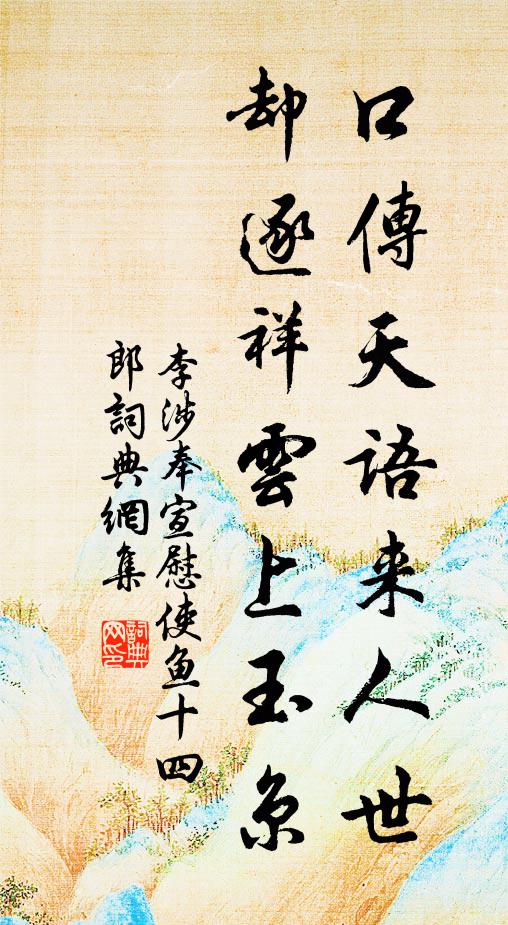 口傳天語来人世
却逐祥雲上玉京
李涉奉宣慰使魚十四
郎詞典網集
詞典网印